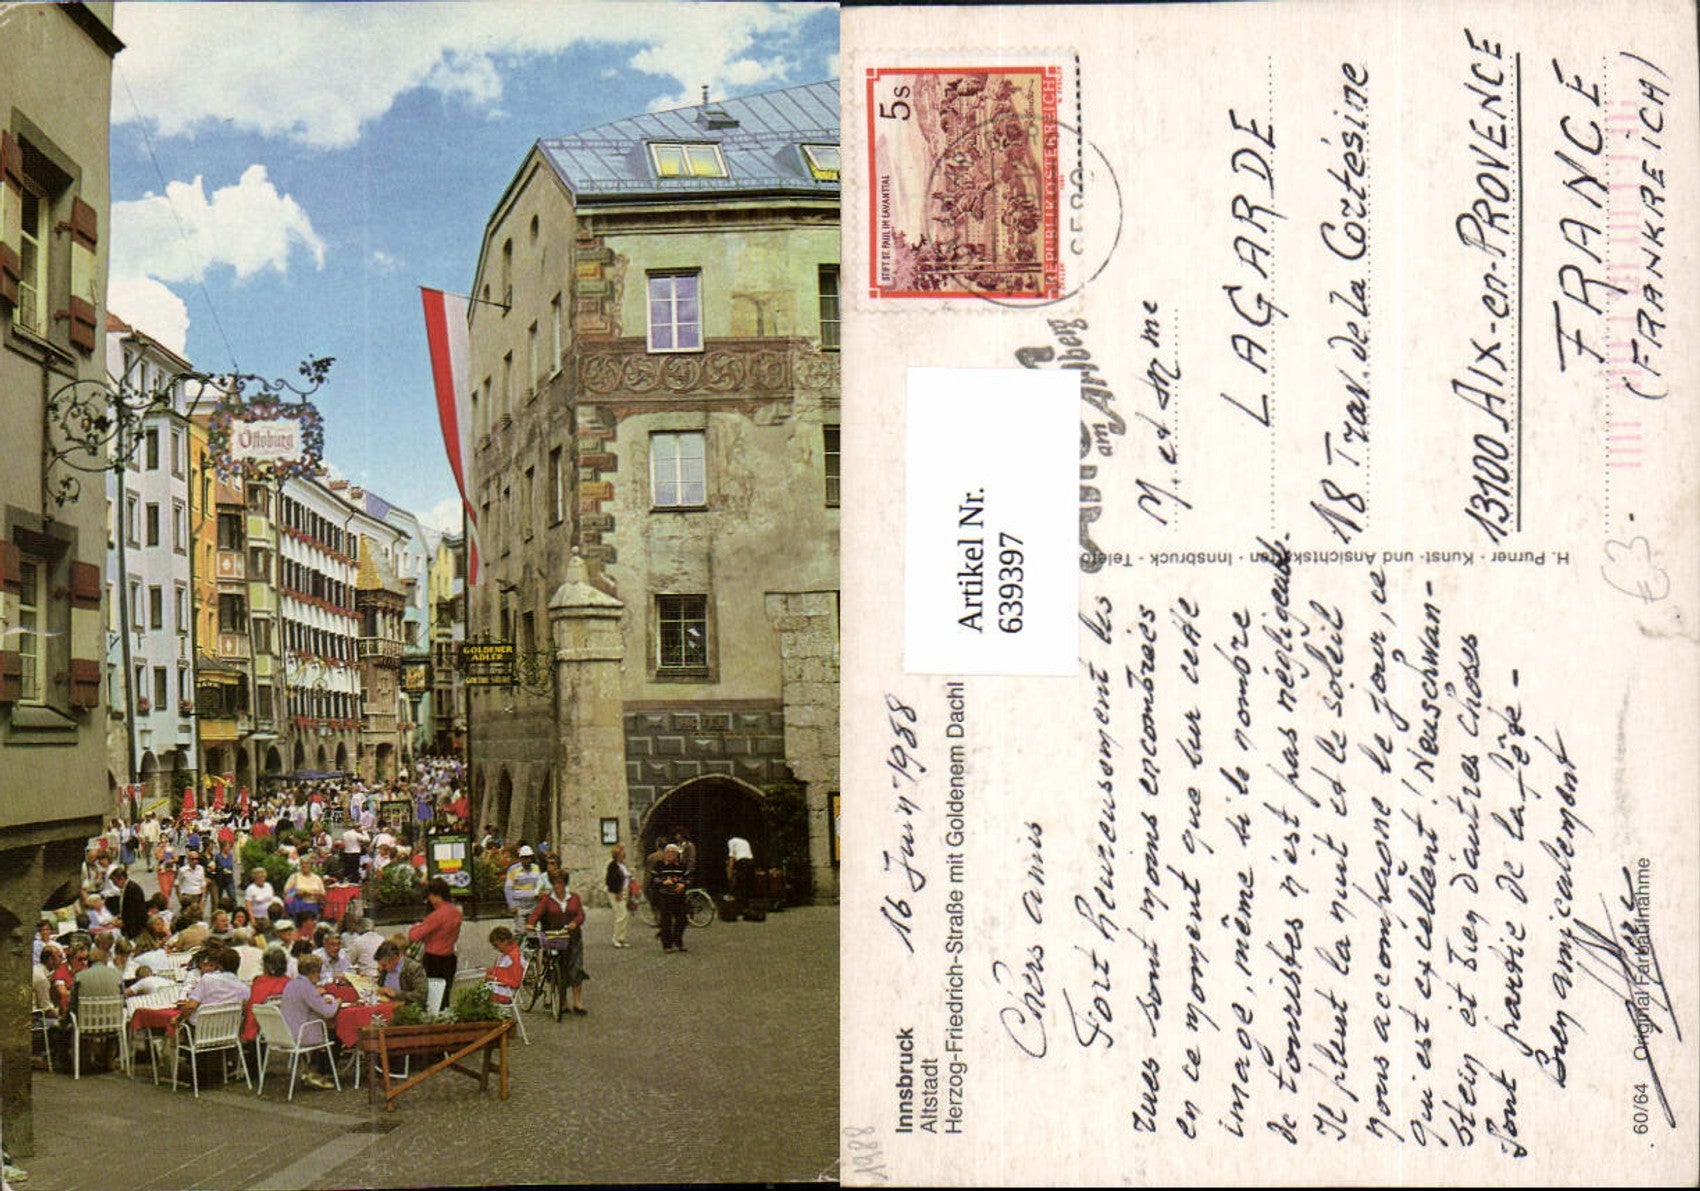 Ottoburg
GOLDENER
ADLER
GOETHE STUBE
Innsbruck
Altstadt
Herzog-Friedrich-Straße mit Goldenem Dachl
16 Juin 1988
Chers amis
Fort heureusement les
rues sont moins encombrées
en ce moment que sur cette
image, même si le nombre
de touristes n'est pas négligeable.
Il pleut la nuit et le soleil
nous accompagne le jour, ce
qui est excellent! Neuschwan-
stein et bien d'autres choses
font partie de la fête -
Bien amicalement
60/64 Original Farbaufnahme
H. Purner - Kunst- und Ansichtskarten - Innsbruck - Telefo
Artikel Nr.
639397
5s
STIFT ST. PAUL IM LAVANTTAL
REPUBLIK ÖSTERREICH
am Arlberg
M. et Mme
LAGARDE
18 Trav. de la Cortésine
13100 AIX-en-PROVENCE
FRANCE
(FRANKREICH)
€3.-
1988